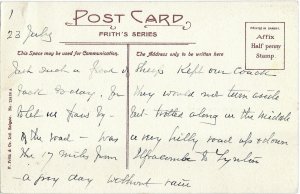 1
23 July
POST CARD
FRITH'S SERIES
This Space may be used for Communication.
The Address only to be written here
PRINTED IN
Affix
Half penny
Stamp.
F. Frith & Co. Ltd. Reigate.
Just such a flock of sheep kept our coach
back to day, for they would not turn aside
to let us pass by - but trotted along in the middle
of the road - was a very hilly road up & down
the 17 miles from Ilfracombe to Lynton
a fine day without rain